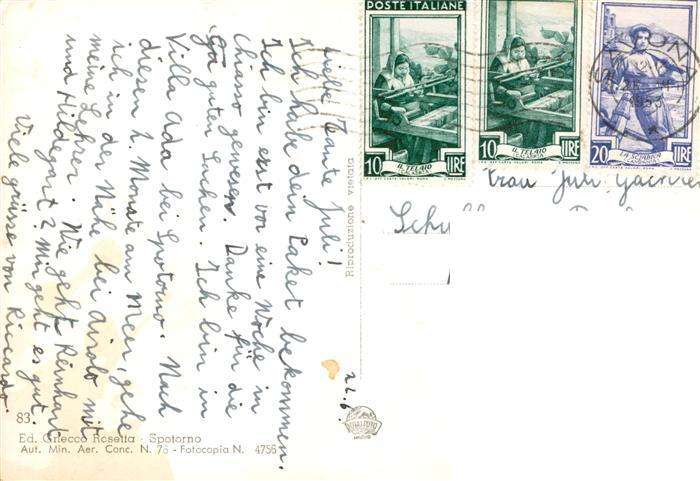 Liebe Tante Juli!
Ich habe dein Paket bekommen.
Ich bin erst vor eine Woche in
Chiasso gewesen. Danke für die
guten Sachen. Ich bin in
Villa Ada bei Spotorno. Nach
diesen 2. Monate am Meer, gehe
ich in der Nähe bei Airolo mit
meine Lehrer. Wie geht Reinhart
und Hildegart? Mir geht es gut.
Viele grüsse von Riccardo.
21.6.
83
Ed. Griecco Rosetta - Spotorno
Aut. Min. Aer. Conc. N. 76 - Fotocopia N. 4756
Riproduzione vietata
POSTE ITALIANE
10 IL TELAIO LIRE
10 IL TELAIO LIRE
20 LIRE
Frau Juli